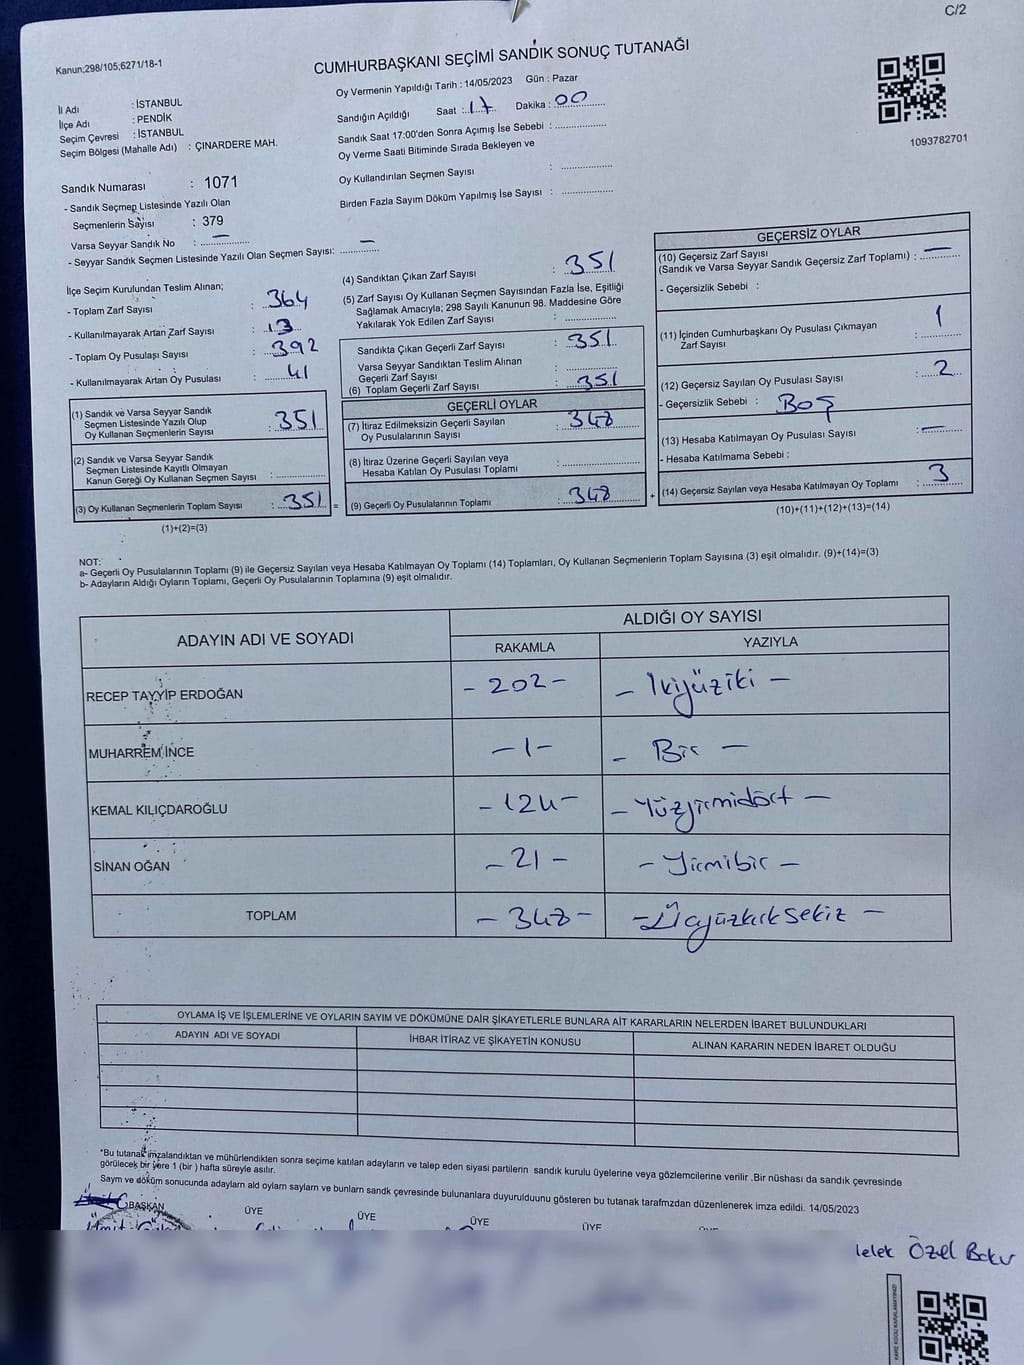 C/2
Kanun;298/105;6271/18-1
CUMHURBAŞKANI SEÇİMİ SANDIK SONUÇ TUTANAĞI
1093782701
İl Adı : İSTANBUL
İlçe Adı : PENDİK
Seçim Çevresi : İSTANBUL
Seçim Bölgesi (Mahalle Adı) : ÇINARDERE MAH.
Oy Vermenin Yapıldığı Tarih : 14/05/2023 Gün : Pazar
Sandığın Açıldığı Saat : 17 Dakika : 00
Sandık Saat 17:00'den Sonra Açımış İse Sebebi : ............
Oy Verme Saati Bitiminde Sırada Bekleyen ve
Oy Kullandırılan Seçmen Sayısı : ............
Birden Fazla Sayım Döküm Yapılmış İse Sayısı : ............
Sandık Numarası : 1071
- Sandık Seçmen Listesinde Yazılı Olan
Seçmenlerin Sayısı : 379
Varsa Seyyar Sandık No : —
- Seyyar Sandık Seçmen Listesinde Yazılı Olan Seçmen Sayısı: —
İlçe Seçim Kurulundan Teslim Alınan;
- Toplam Zarf Sayısı : 364
- Kullanılmayarak Artan Zarf Sayısı : 13
- Toplam Oy Pusulası Sayısı : 392
- Kullanılmayarak Artan Oy Pusulası : 41
(1) Sandık ve Varsa Seyyar Sandık
Seçmen Listesinde Yazılı Olup
Oy Kullanan Seçmenlerin Sayısı : 351
(2) Sandık ve Varsa Seyyar Sandık
Seçmen Listesinde Kayıtlı Olmayan
Kanun Gereği Oy Kullanan Seçmen Sayısı : ............
(3) Oy Kullanan Seçmenlerin Toplam Sayısı : 351 =
(1)+(2)=(3)
(4) Sandıktan Çıkan Zarf Sayısı : 351
(5) Zarf Sayısı Oy Kullanan Seçmen Sayısından Fazla İse, Eşitliği
Sağlamak Amacıyla; 298 Sayılı Kanunun 98. Maddesine Göre
Yakılarak Yok Edilen Zarf Sayısı : ............
Sandıkta Çıkan Geçerli Zarf Sayısı : 351
Varsa Seyyar Sandıktan Teslim Alınan
Geçerli Zarf Sayısı : ............
(6) Toplam Geçerli Zarf Sayısı : 351
GEÇERLİ OYLAR
(7) İtiraz Edilmeksizin Geçerli Sayılan
Oy Pusulalarının Sayısı : 348
(8) İtiraz Üzerine Geçerli Sayılan veya
Hesaba Katılan Oy Pusulası Toplamı : ............
(9) Geçerli Oy Pusulalarının Toplamı : 348 +
GEÇERSİZ OYLAR
(10) Geçersiz Zarf Sayısı
(Sandık ve Varsa Seyyar Sandık Geçersiz Zarf Toplamı) : —
- Geçersizlik Sebebi :
(11) İçinden Cumhurbaşkanı Oy Pusulası Çıkmayan
Zarf Sayısı : 1
(12) Geçersiz Sayılan Oy Pusulası Sayısı : 2
- Geçersizlik Sebebi : Boş
(13) Hesaba Katılmayan Oy Pusulası Sayısı : —
- Hesaba Katılmama Sebebi :
(14) Geçersiz Sayılan veya Hesaba Katılmayan Oy Toplamı : 3
(10)+(11)+(12)+(13)=(14)
NOT:
a- Geçerli Oy Pusulalarının Toplamı (9) ile Geçersiz Sayılan veya Hesaba Katılmayan Oy Toplamı (14) Toplamları, Oy Kullanan Seçmenlerin Toplam Sayısına (3) eşit olmalıdır. (9)+(14)=(3)
b- Adayların Aldığı Oyların Toplamı, Geçerli Oy Pusulalarının Toplamına (9) eşit olmalıdır.
ADAYIN ADI VE SOYADI ALDIĞI OY SAYISI
RAKAMLA YAZIYLA
RECEP TAYYİP ERDOĞAN - 202 - - İkiyüziki -
MUHARREM İNCE - 1 - - Bir -
KEMAL KILIÇDAROĞLU - 124 - - Yüzyirmidört -
SİNAN OĞAN - 21 - - Yirmibir -
TOPLAM - 348 - - Üçyüzkırksekiz -
OYLAMA İŞ VE İŞLEMLERİNE VE OYLARIN SAYIM VE DÖKÜMÜNE DAİR ŞİKAYETLERLE BUNLARA AİT KARARLARIN NELERDEN İBARET BULUNDUKLARI
ADAYIN ADI VE SOYADI İHBAR İTİRAZ VE ŞİKAYETİN KONUSU ALINAN KARARIN NEDEN İBARET OLDUĞU
*Bu tutanak imzalandıktan ve mühürlendikten sonra seçime katılan adayların ve talep eden siyasi partilerin sandık kurulu üyelerine veya gözlemcilerine verilir .Bir nüshası da sandık çevresinde
görülecek bir yere 1 (bir ) hafta süreyle asılır.
Saym ve döküm sonucunda adaylarn ald oylarn saylarn ve bunlarn sandk çevresinde bulunanlara duyurulduunu gösteren bu tutanak tarafmzdan düzenlenerek imza edildi. 14/05/2023
BAŞKAN ÜYE ÜYE ÜYE ÜYE
lelek Özel